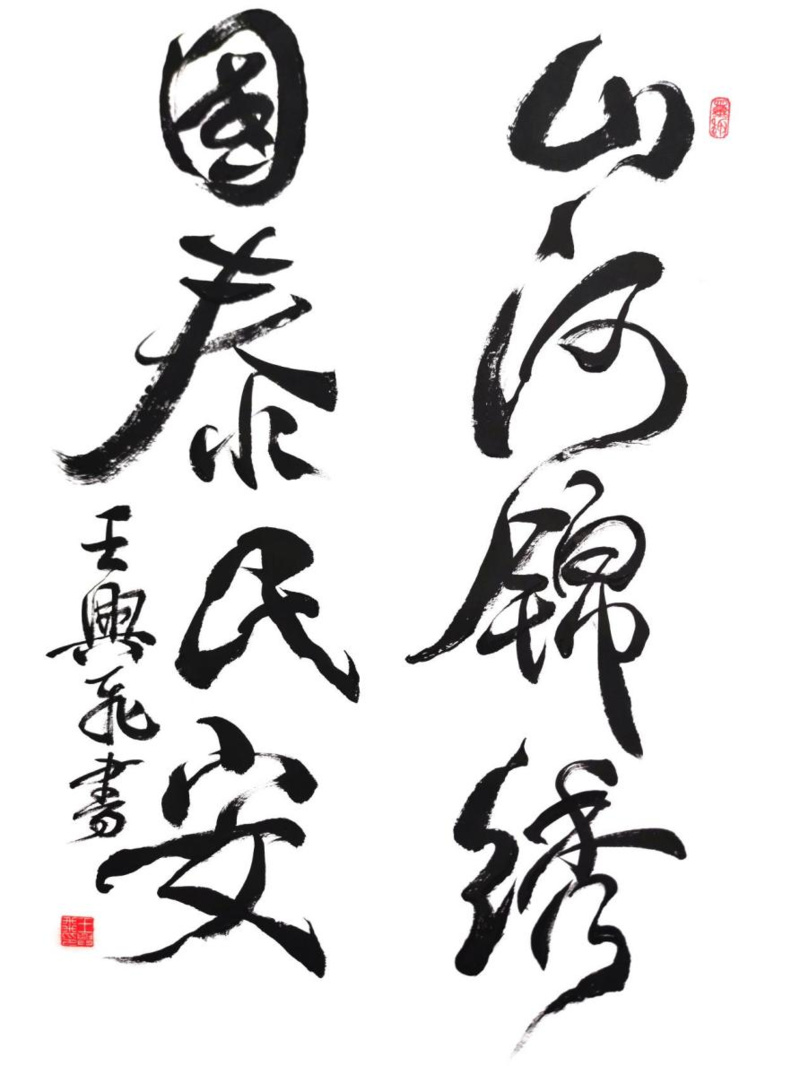 山河锦绣
國泰民安
王興飛書